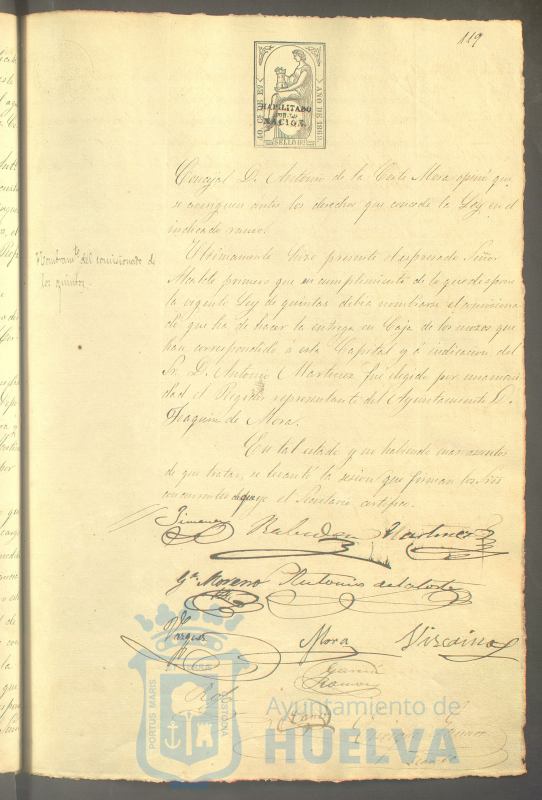 119
10. Cs. DE Eº
AÑO DE 1869.
HABILITADO
POR LA
NACION.
SELLO 9º
Concejal D. Antonio de la Corte Mora opinó que
se averiguen antes los derechos que concede la Ley en el
indicado ramo.
Nombramto del comisionado de
los quintos.
Ultimamente hizo presente el espresado Señor
Alcalde primero que en cumplimiento de lo que dispone
la vigente Ley de quintas debia nombrarse el comisiona
do que ha de hacer la entrega en Caja de los mozos que
han correspondido á esta Capital y á indicacion del
Sr. D. Antonio Martinez fué elegido por unanimi
dad el Regidor representante del Ayuntamiento D.
Joaquin de Mora.
En tal estado y no habiendo mas asuntos
de que tratar, se levantó la sesion que firman los Sres
concurrentes de que yo el Secretario certifico.
Jimenez
Martinez
Gª Moreno
Antonio de la Corte
Vazquez
Mora
Vizcaino
Garcia
Ramos
PORTUS MARIS
CUSTODIA
Ayuntamiento de
HUELVA